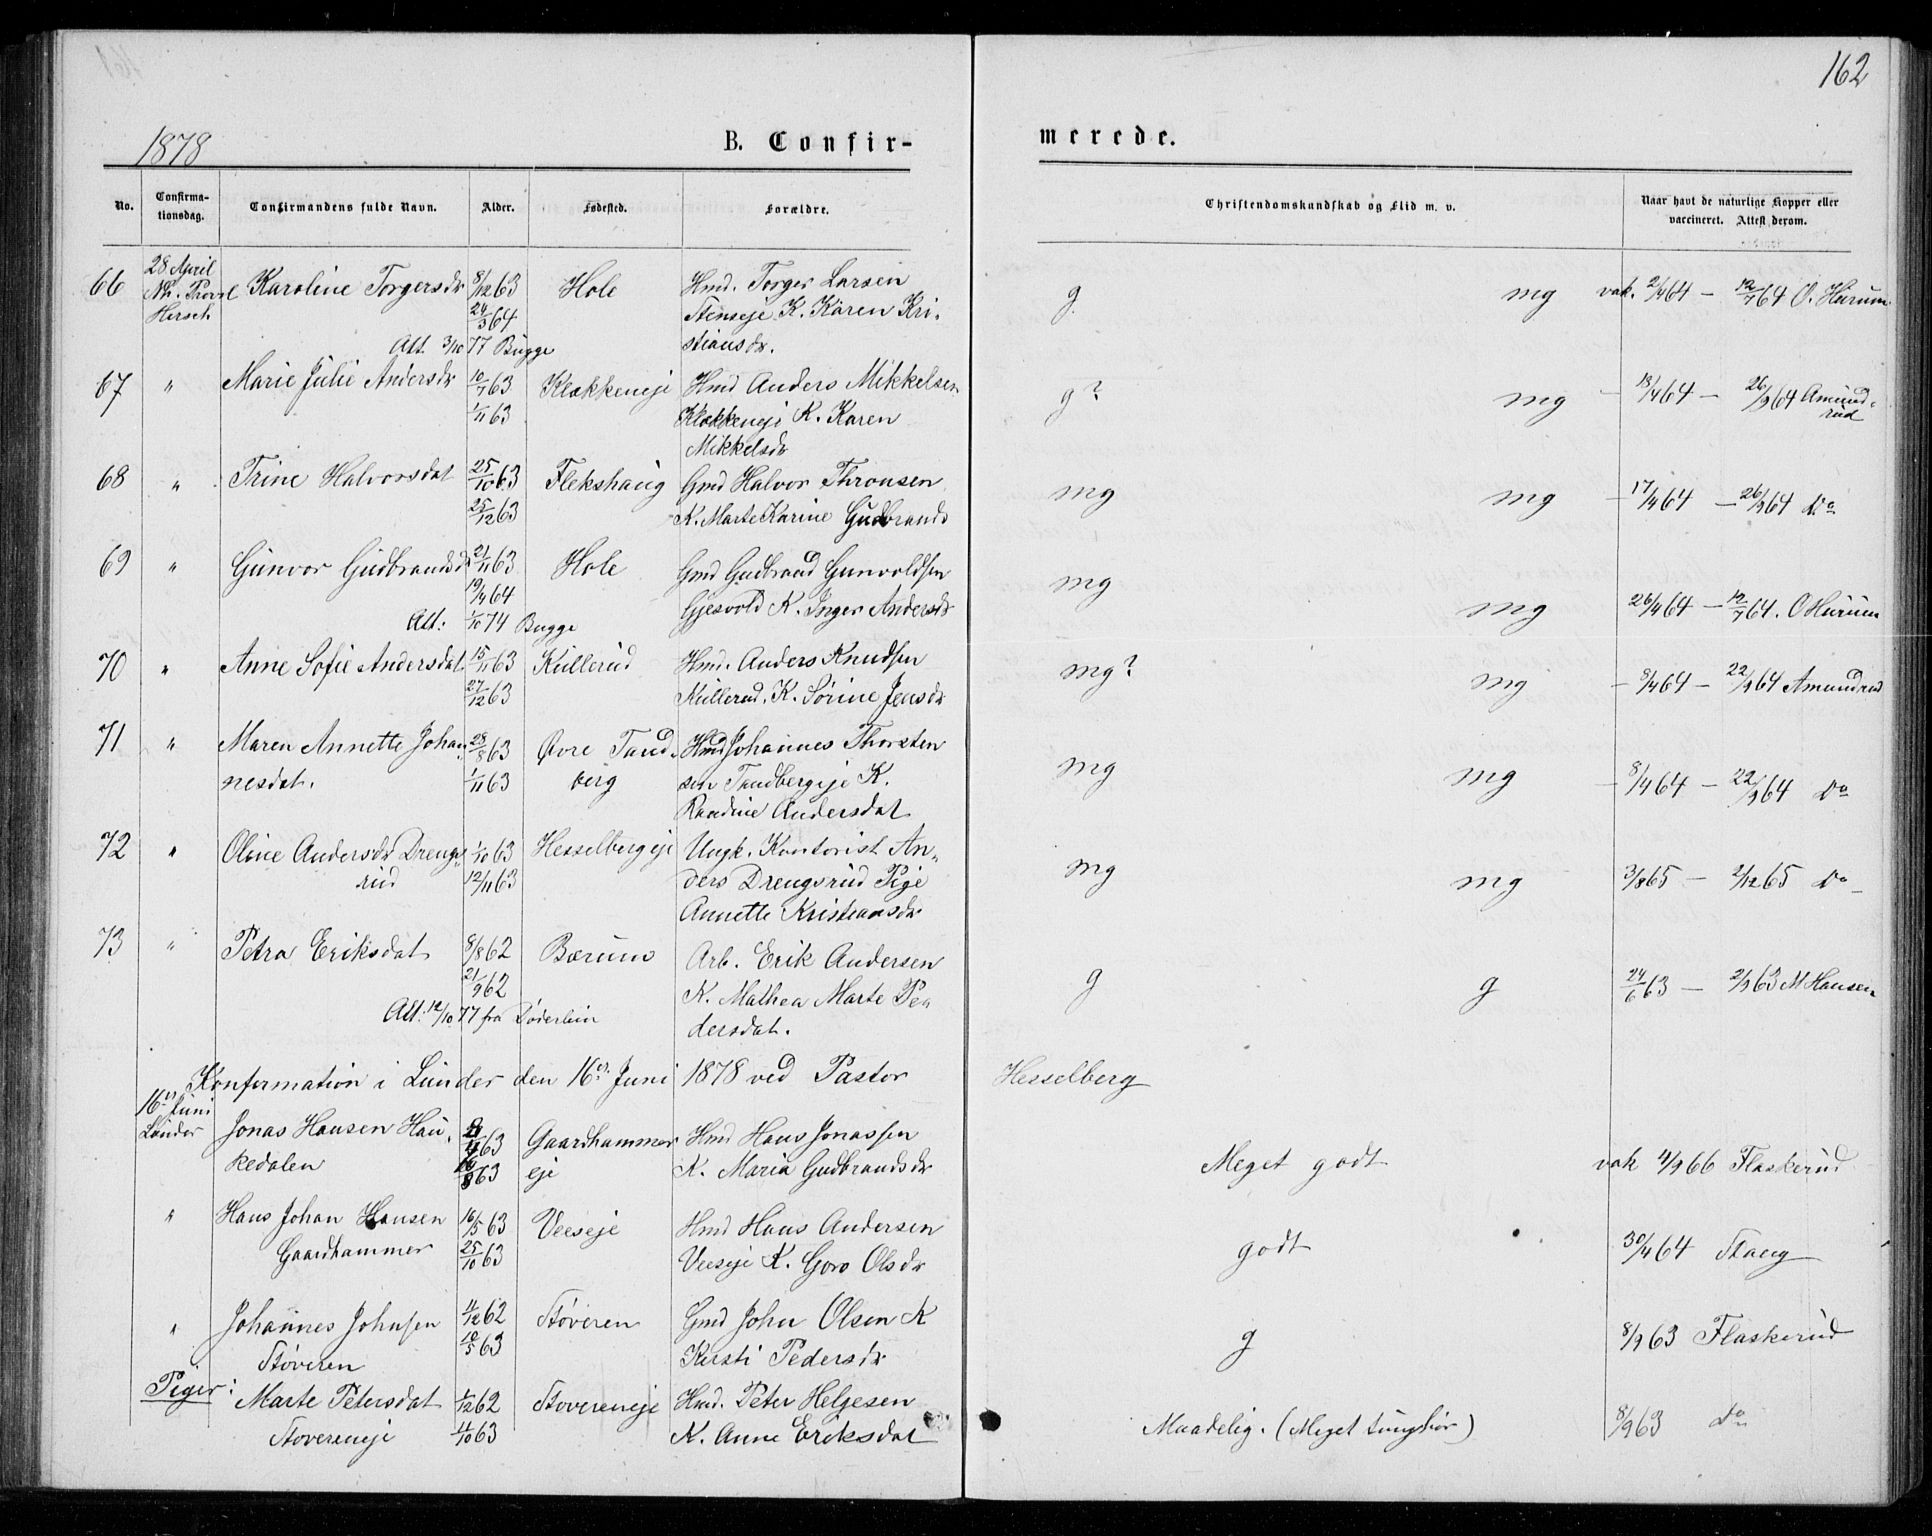 162
1878
B. Confir-
merede.
No.
Confirma-
tionsdag.
Confirmandens fulde Navn.
Alder.
Fødested.
Forældre.
Christendomskundskab og Flid m. v.
Naar havt de naturlige Kopper eller
vaccineret. Attest derom.
66 28 April Karoline Torgersdr 8/12 63 Hole Hmd. Torger Larsen g. mg vak. 2/4 64 – 12/7 64 O. Hurum
Nh. 24/3 64 Stenseje K. Karen Kri-
Att. 3/10 77 Bugge stiansdr.
67 " Marie Julie Andersdr 10/7 63 Klokkeneje Hmd Anders Mikkelsen g? mg – 18/4 64 – 26/9 64 Amund-
1/11 63 Klokkeneje K. Karen rud
Mikkelsdr
68 " Trine Halvorsdat 25/10 63 Flekshaug Gmd Halvor Thronsen mg mg – 17/4 64 – 26/9 64 Do
25/12 63 K. Marte Karine Gudbrands
69 " Gunvor Gudbrandsd 21/11 63 Hole Gmd Gudbrand Gunvoldsen mg mg 26/4 64 – 12/7 64. O Hurum
19/4 64 Gjesvold K. Inger Andersdr
Att: 1/10 74 Bugge
70 " Anne Sofie Andersdat. 15/11 63 Kullerud Hmd. Anders Knudsen mg? mg – 8/4 64 – 22/9 64 Amundrud
27/12 63 Kullerud. K. Sørine Jensdr
71 " Maren Annette Johan- 28/8 63 Øvre Tand- Hmd Johannes Thorsten mg mg – 8/4 64 – 22/9 64 Do
nesdat. 1/11 63 berg sen Tandbergeje K.
Randine Andersdat
72 " Oline Andersdr Drengs- 1/10 63 Hesselbergeje Ungk. Kontorist An- mg mg 3/8 65 – 2/12 65 Do
rud 12/11 63 ders Drengsrud Pige
Annette Kristiansdr
73 " Petra Eriksdat 8/8 62 Bærum Arb. Erik Andersen g g 24/6 63 – 2/9 63 M Hansen
21/9 62 K. Mathea Marte Pe
Att: 12/10 77 fra Døderlein dersdat.
Konfirmation i Lunder den 16de Juni 1878 ved Pastor Hesselberg
16de Juni
Lunder Jonas Hansen Hau- 63 Gaardhammer Hmd Hans Jonassen Meget godt vak 4/9 66 Flaskerud
kedalen 63 eje K. Maria Gudbrandsdr
" Hans Johan Hansen 16/5 63 Veeseje Hmd Hans Andersen godt 30/4 64 Stang
Gaardhammer 25/10 63 Veeseje K. Goro Olsdr
" Johannes Johnsen 4/12 62 Støveren Gmd John Olsen K g 8/9 63 Flaskerud
Støveren 10/5 63 Kirsti Pedersdr
Piger: Marte Petersdat 1/12 62 Støvereneje Hmd. Peter Helgesen Maadelig. (Meget tunghør) 8/9 63 Do
Støvereneje 4/10 63 K. Anne Eriksdat